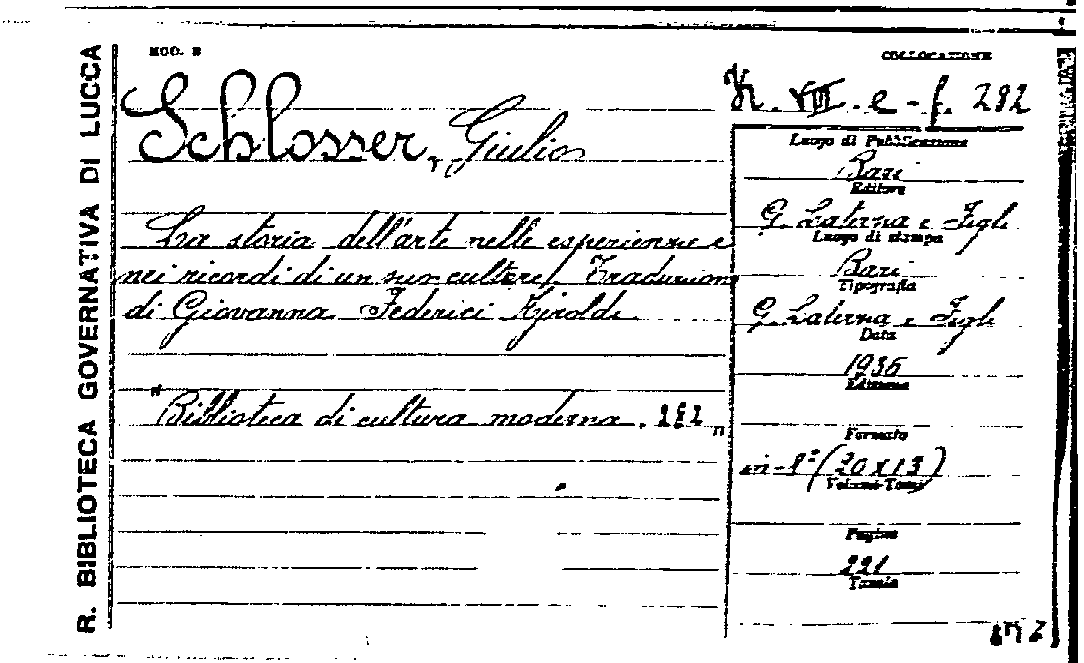 R. BIBLIOTECA GOVERNATIVA DI LUCCA
MOD. B
Schlosser, Giulio
La storia dell'arte nelle esperienze e
nei ricordi di un suo cultore/. Traduzione
di Giovanna Federici Ajroldi
"Biblioteca di cultura moderna. 282"
COLLOCAZIONE
VIII. e - f. 282
Luogo di Pubblicazione
Bari
Editore
G. Laterza e Figli
Luogo di stampa
Bari
Tipografia
G. Laterza e Figli
Data
1936
Edizione
Formato
in-8° (20x13)
Volumi-Tomi
Pagine
221
Tavole